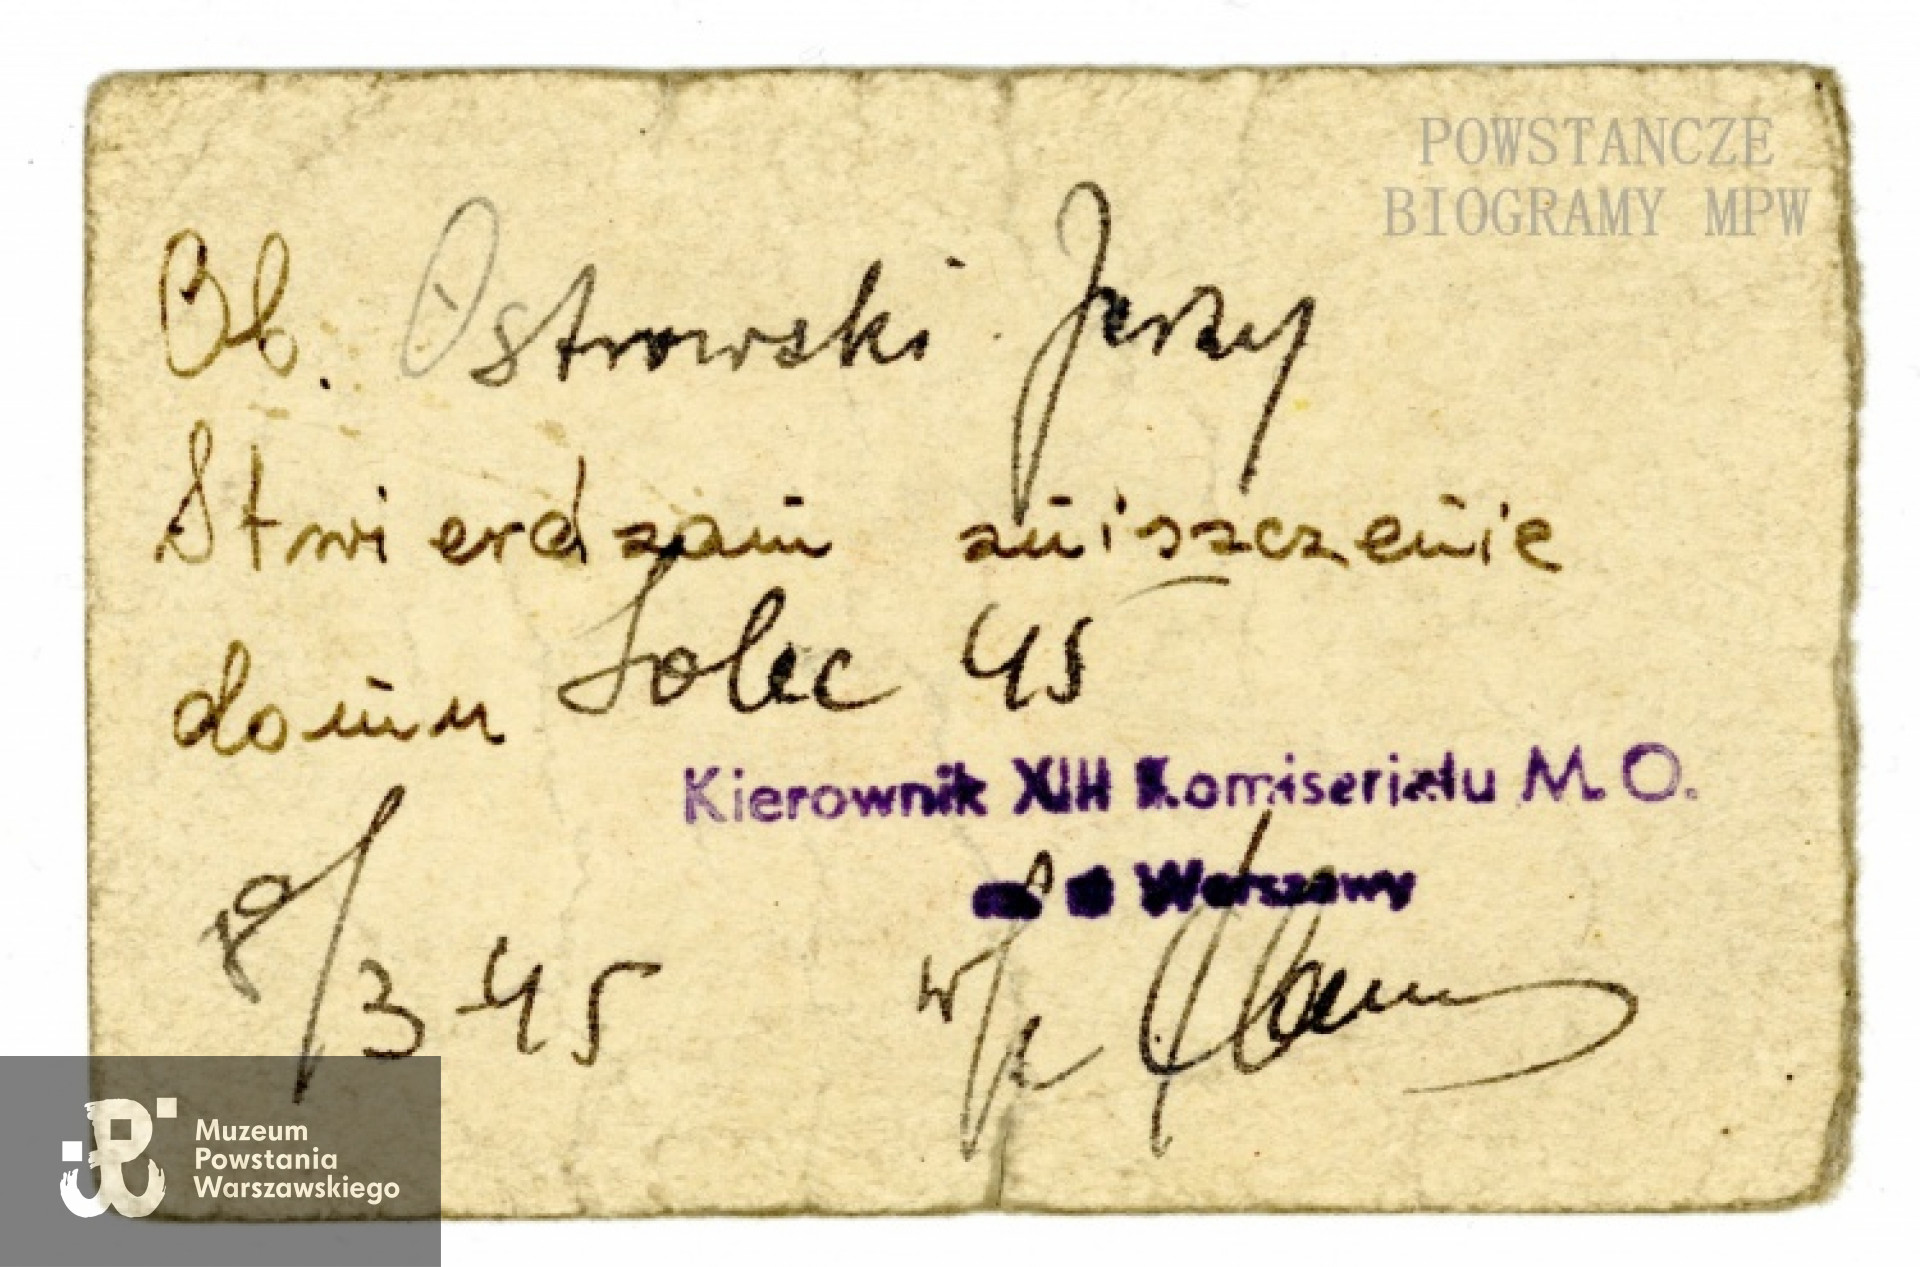 POWSTANCZE
BIOGRAMY MPW
Ob. Ostrowski Jerzy
Stwierdzam zniszczenie
domu Solec 45
Kierownik XIII Komiserjatu M. O.
Warszawy
8/3 45
w/z
Muzeum
Powstania
Warszawskiego